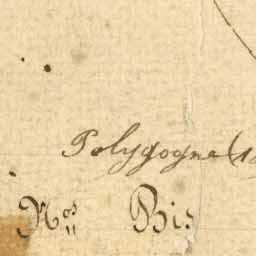 Polygogne (1
Nos Bis